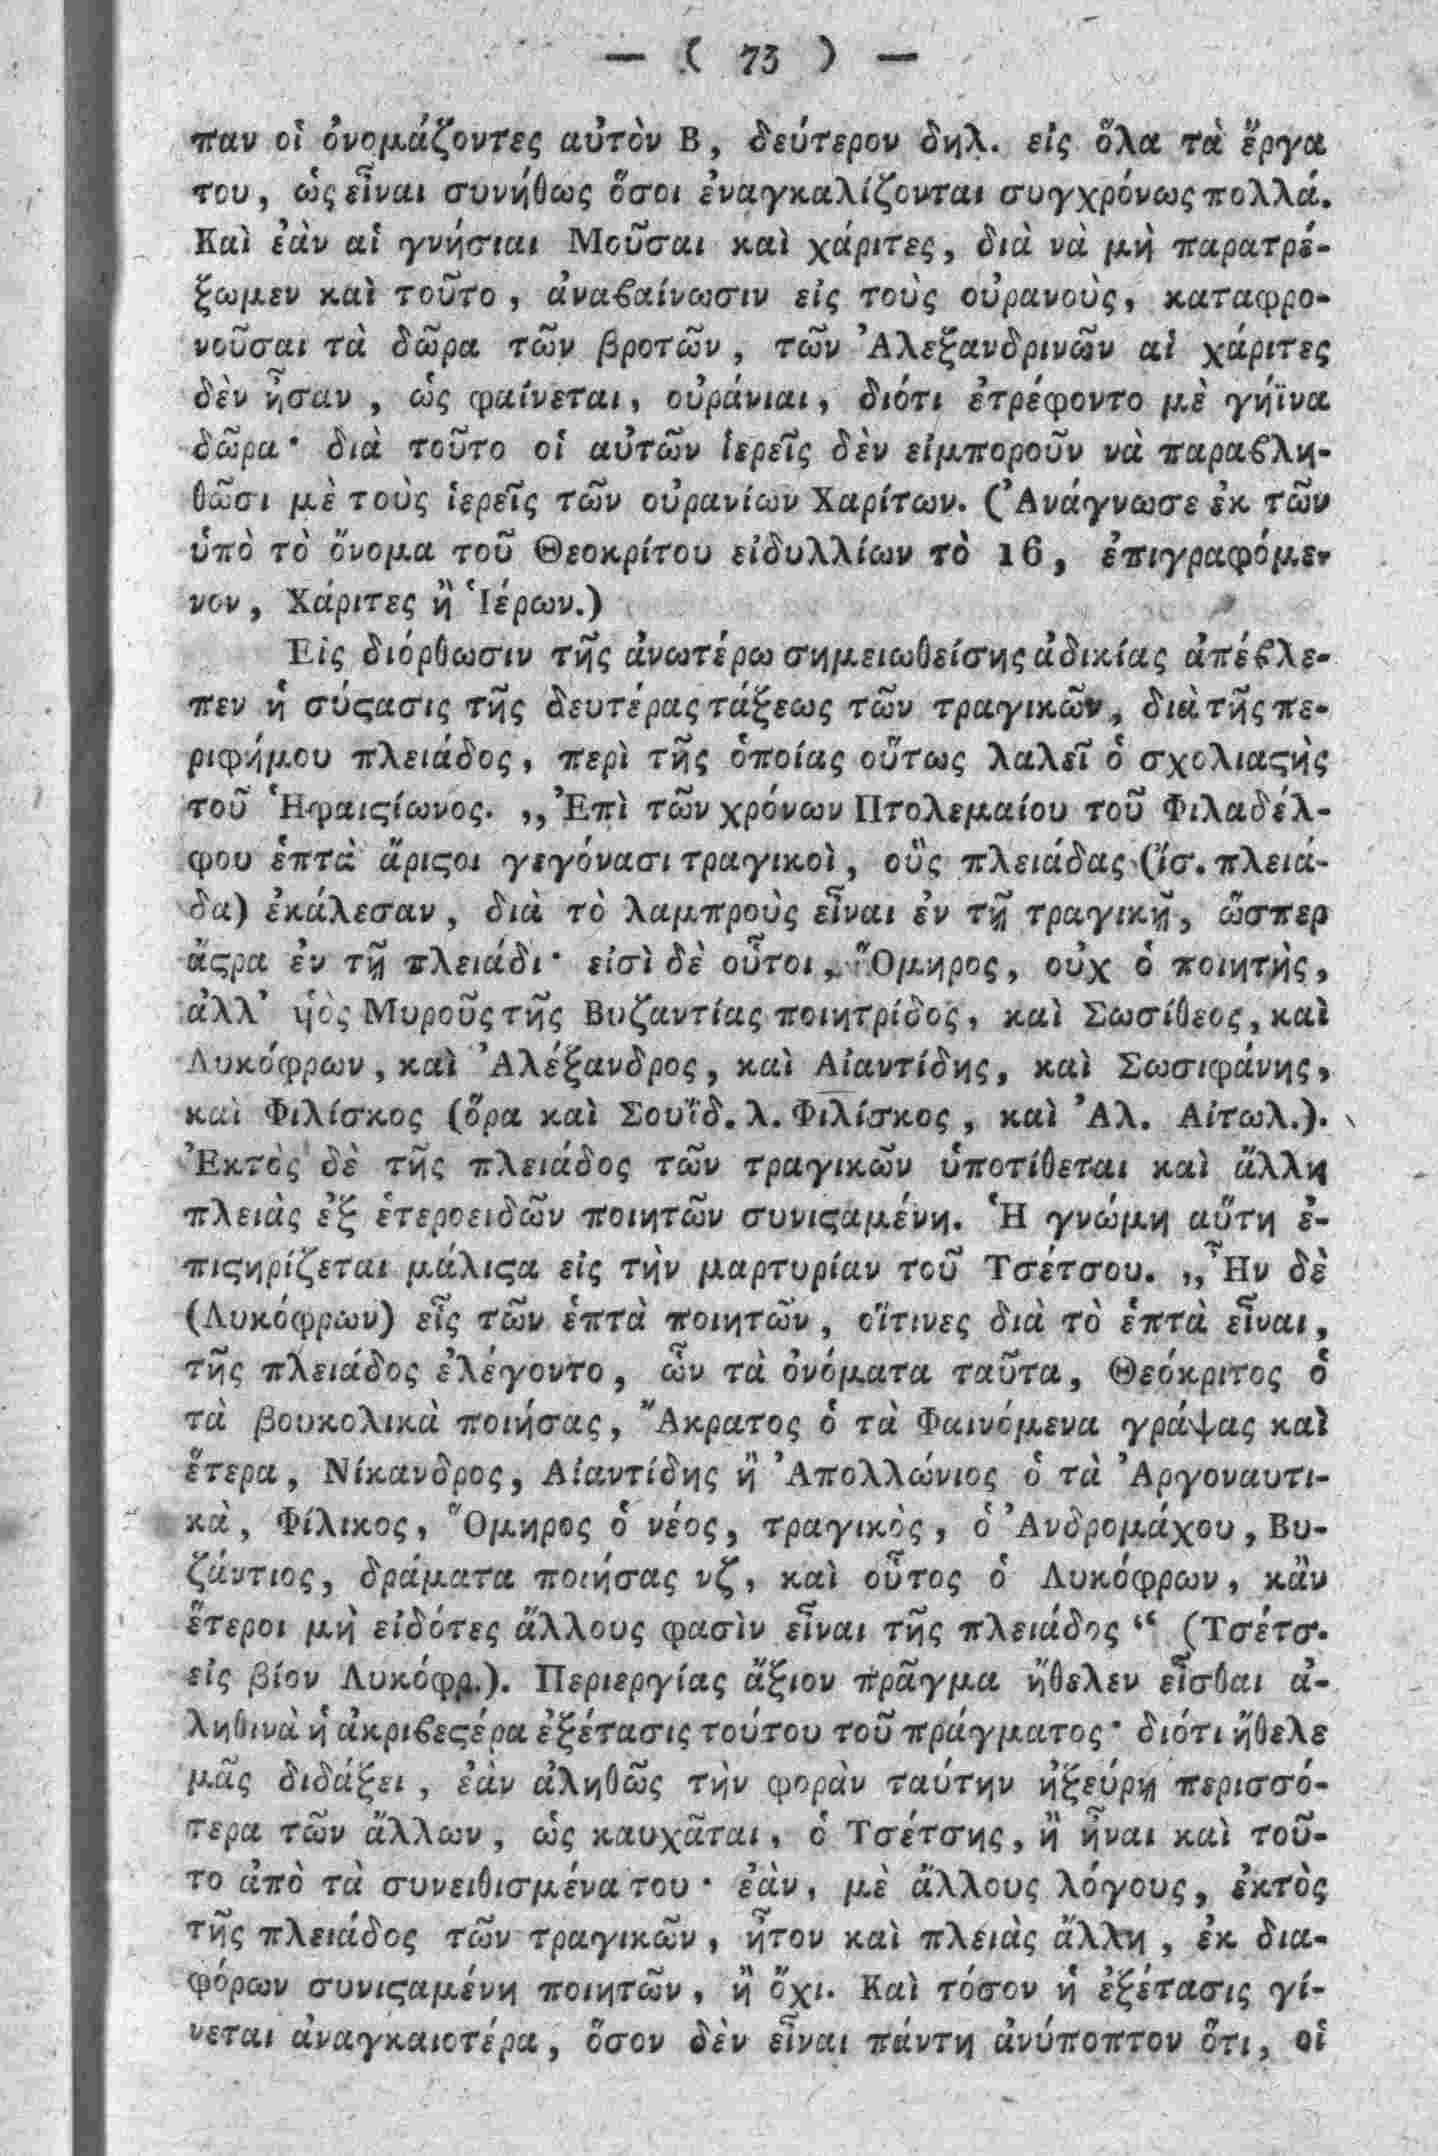 — ( 73 ) —
παν οἱ ὀνομάζοντες αὐτὸν Β, δεύτερον δηλ. εἰς ὅλα τὰ ἔργα
του, ὡς εἶναι συνήθως ὅσοι ἐναγκαλίζονται συγχρόνως πολλά.
Καὶ ἐὰν αἱ γνήσιαι Μοῦσαι καὶ χάριτες, διὰ νὰ μὴ παρατρέ-
ξωμεν καὶ τοῦτο, ἀναϐαίνωσιν εἰς τοὺς οὐρανοὺς, καταφρο-
νοῦσαι τὰ δῶρα τῶν βροτῶν, τῶν Ἀλεξανδρινῶν αἱ χάριτες
δὲν ἦσαν, ὡς φαίνεται, οὐράνιαι, διότι ἐτρέφοντο μὲ γήϊνα
δῶρα· διὰ τοῦτο οἱ αὐτῶν ἱερεῖς δὲν εἰμποροῦν νὰ παραϐλη-
θῶσι μὲ τοὺς ἱερεῖς τῶν οὐρανίων Χαρίτων. (Ἀνάγνωσε ἐκ τῶν
ὑπὸ τὸ ὄνομα τοῦ Θεοκρίτου εἰδυλλίων τὸ 16, ἐπιγραφόμε-
νον, Χάριτες ἢ Ἱέρων.)
Εἰς διόρθωσιν τῆς ἀνωτέρω σημειωθείσης ἀδικίας ἀπέϐλε-
πεν ἡ σύϛασις τῆς δευτέρας τάξεως τῶν τραγικῶν, διὰ τῆς πε-
ριφήμου πλειάδος, περὶ τῆς ὁποίας οὕτως λαλεῖ ὁ σχολιαϛὴς
τοῦ Ἡφαιϛίωνος. „Ἐπὶ τῶν χρόνων Πτολεμαίου τοῦ Φιλαδέλ-
φου ἑπτὰ ἄριϛοι γεγόνασι τραγικοὶ, οὓς πλειάδας (ἴσ. πλειά-
δα) ἐκάλεσαν, διὰ τὸ λαμπροὺς εἶναι ἐν τῇ τραγικῇ, ὥσπερ
ἄϛρα ἐν τῇ πλειάδι· εἰσὶ δὲ οὗτοι, Ὅμηρος, οὐχ ὁ ποιητὴς,
ἀλλ’ υἱὸς Μυροῦς τῆς Βυζαντίας ποιητρίδος, καὶ Σωσίθεος, καὶ
Λυκόφρων, καὶ Ἀλέξανδρος, καὶ Αἰαντίδης, καὶ Σωσιφάνης,
καὶ Φιλίσκος (ὅρα καὶ Σουΐδ. λ. Φιλίσκος, καὶ Ἀλ. Αἰτωλ.).
Ἐκτὸς δὲ τῆς πλειάδος τῶν τραγικῶν ὑποτίθεται καὶ ἄλλη
πλειὰς ἐξ ἑτεροειδῶν ποιητῶν συνιϛαμένη. Ἡ γνώμη αὕτη ἐ-
πιϛηρίζεται μάλιϛα εἰς τὴν μαρτυρίαν τοῦ Τσέτσου. „Ἦν δὲ
(Λυκόφρων) εἷς τῶν ἑπτὰ ποιητῶν, οἵτινες διὰ τὸ ἑπτὰ εἶναι,
τῆς πλειάδος ἐλέγοντο, ὧν τὰ ὀνόματα ταῦτα, Θεόκριτος ὁ
τὰ βουκολικὰ ποιήσας, Ἄκρατος ὁ τὰ Φαινόμενα γράψας καὶ
ἕτερα, Νίκανδρος, Αἰαντίδης ἢ Ἀπολλώνιος ὁ τὰ Ἀργοναυτι-
κὰ, Φίλικος, Ὅμηρος ὁ νέος, τραγικὸς, ὁ Ἀνδρομάχου, Βυ-
ζάντιος, δράματα ποιήσας νζ, καὶ οὗτος ὁ Λυκόφρων, κἂν
ἕτεροι μὴ εἰδότες ἄλλους φασὶν εἶναι τῆς πλειάδος“ (Τσέτσ.
εἰς βίον Λυκόφρ.). Περιεργίας ἄξιον πρᾶγμα ἤθελεν εἶσθαι ἀ-
ληθινὰ ἡ ἀκριϐεϛέρα ἐξέτασις τούτου τοῦ πράγματος· διότι ἤθελε
μᾶς διδάξει, ἐὰν ἀληθῶς τὴν φορὰν ταύτην ἠξεύρῃ περισσό-
τερα τῶν ἄλλων, ὡς καυχᾶται, ὁ Τσέτσης, ἢ ἦναι καὶ τοῦ-
το ἀπὸ τὰ συνειθισμένα του· ἐὰν, μὲ ἄλλους λόγους, ἐκτὸς
τῆς πλειάδος τῶν τραγικῶν, ἦτον καὶ πλειὰς ἄλλη, ἐκ δια-
φόρων συνιϛαμένη ποιητῶν, ἢ ὄχι. Καὶ τόσον ἡ ἐξέτασις γί-
νεται ἀναγκαιοτέρα, ὅσον δὲν εἶναι πάντη ἀνύποπτον ὅτι, οἱ